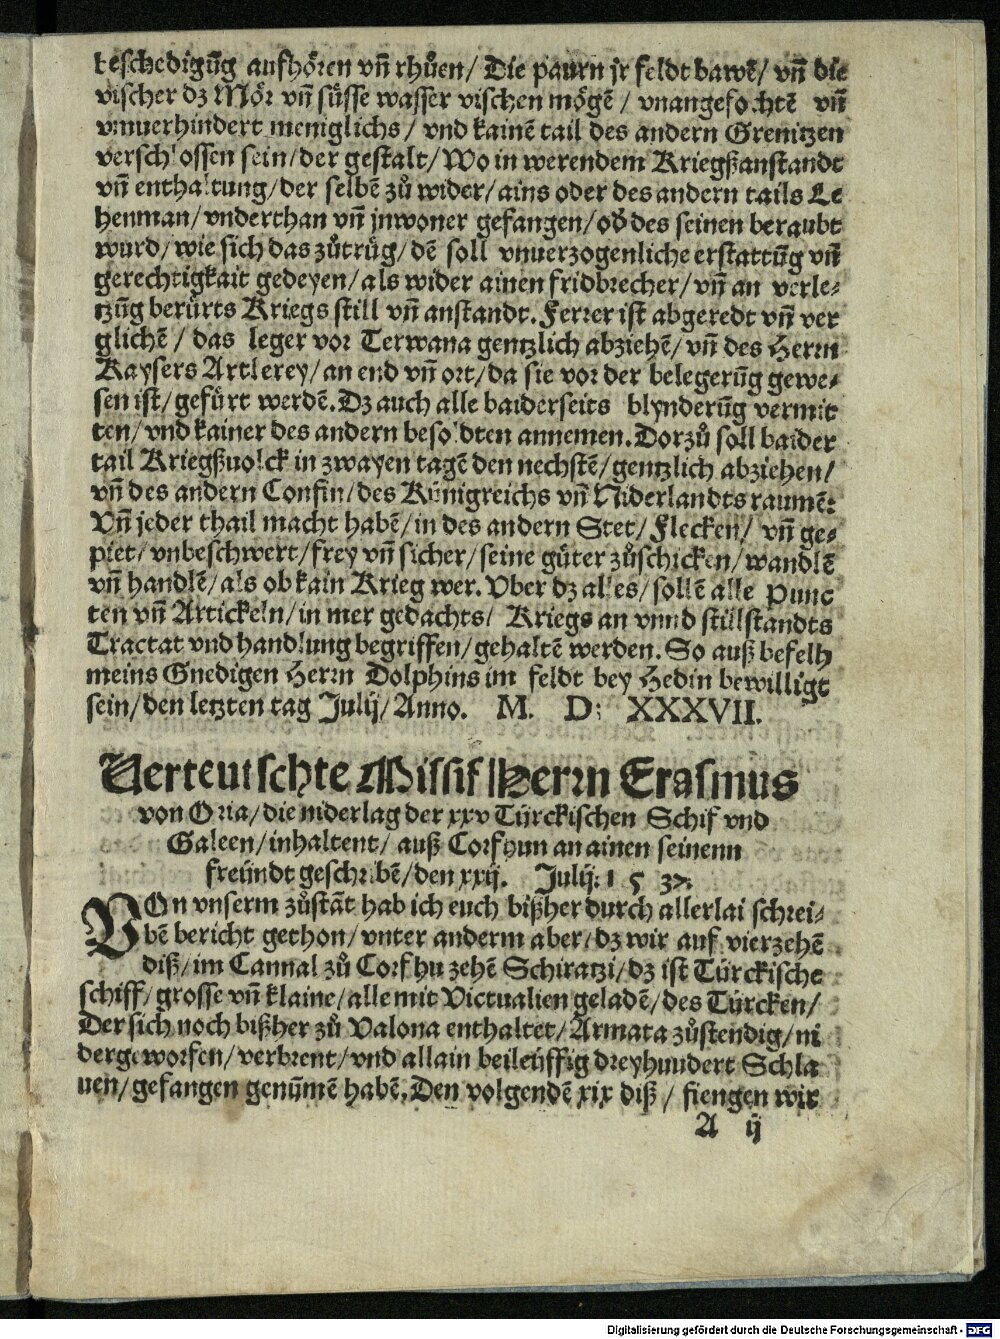 beschedigūg aufhören vn̄ rhůen/ Die paurn jr feldt bawē/ vn̄ die
vischer dz Mör vn̄ süsse wasser vischen mögē / vnangefochtē vn̄
vnuerhindert meniglichs/ vnd kainē tail des andern Grenitzen
verschlossen sein/der gestalt/Wo in werendem Kriegßanstandt
vn̄ enthaltung/der selbē zů wider/ains oder des andern tails Le
henman/vnderthan vn̄ jnwoner gefangen/oď des seinen beraubt
wurd/wie sich das zůtrüg/dē soll vnuerzogenliche erstattūg vn̄
gerechtigkait gedeyen/als wider ainen fridbrecher/vn̄ an verle⸗
tzūg berürts Kriegs still vn̄ anstandt. Ferrer ist abgeredt vn̄ ver
glichē / das leger vor Terwana gentzlich abziehē/ vn̄ des Herrn
Kaysers Artlerey/an end vn̄ ort/da sie vor der belegerūg gewe⸗
sen ist/gefürt werdē. Dz auch alle baiderseits blynderūg vermit
ten/vnd kainer des andern besoldten annemen. Dorzů soll baider
tail Kriegßuolck in zwayen tagē den nechstē/gentzlich abziehen/
vn̄ des andern Confin/des Künigreichs vn̄ Niderlandts raumē:
Vn̄ jeder thail macht habē/in des andern Stet/Flecken/ vn̄ ge⸗
piet/vnbeschwert/frey vn̄ sicher/seine güter zůschicken/wandlē
vn̄ handlē/als ob kain Krieg wer. Vber dz alles/sollē alle Punc
ten vn̄ Artickeln/in mer gedachts/ Kriegs an vnnd stillstandts
Tractat vnd handlung begriffen/gehaltē werden. So auß befelh
meins Gnedigen Herrn Dolphins im feldt bey Hedin bewilligt
sein/den letzten tag Julij/Anno. M. D: XXXVII.
Verteutschte Missif Herrn Erasmus
von Oria/die niderlag der xxv Türckischen Schif vnd
Galeen/inhaltent/ auß Corfhun an ainen seinenn
freündt geschribē/den xxij. Julij: 1 5 37.
VOn vnserm zůstāt hab ich euch bißher durch allerlai schrei⸗
bē bericht gethon/vnter anderm aber/dz wir auf vierzehē
diß/im Cannal zů Corfhu zehē Schiratzi/dz ist Türckische
schiff/grosse vn̄ klaine/alle mit Victualien geladē/des Türcken/
Der sich noch bißher zů Valona enthaltet/Armata zůstendig/ni
dergeworfen/verbrent/vnd allain beileüffig dreyhundert Schla
uen/gefangen genūmē habē. Den volgendē xix diß/ fiengen wir
A ij
Digitalisierung gefördert durch die Deutsche Forschungsgemeinschaft - DFG